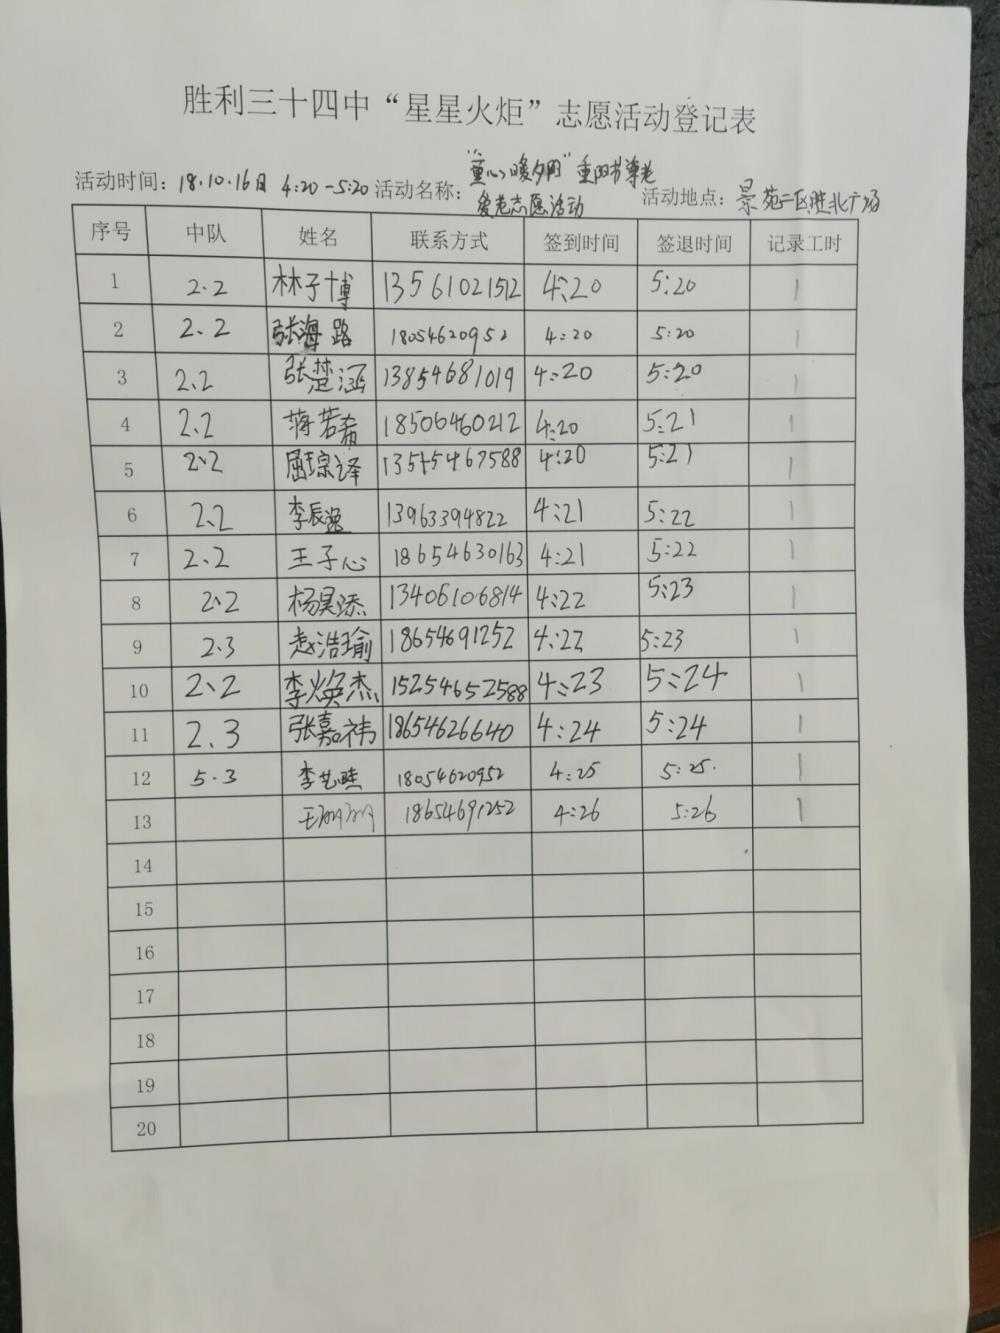 胜利三十四中“星星火炬”志愿活动登记表
活动时间：18.10.16日 4:20-5:20 活动名称：“童心暖夕阳”重阳节尊老
爱老志愿活动 活动地点：景苑二区胜北广场
序号 中队 姓名 联系方式 签到时间 签退时间 记录工时
1 2.2 林子博 13561021512 4:20 5:20 1
2 2、2 张海路 18054620952 4:20 5:20 1
3 2.2 张楚涵 13854681019 4:20 5:20 1
4 2.2 蒋若希 18506460212 4:20 5:21 1
5 2、2 屈琮译 13515467588 4:20 5:21 1
6 2、2 李辰逸 13963394822 4:21 5:22 1
7 2、2 王子心 18654630163 4:21 5:22 1
8 2、2 杨昊添 13406106814 4:22 5:23 1
9 2.3 赵浩瑜 18654691252 4:22 5:23 1
10 2、2 李焕杰 15254652588 4:23 5:24 1
11 2.3 张嘉祎 18654626640 4:24 5:24 1
12 5.3 李艺 18054620952 4:25 5:25. 1
13 王 18654691252 4:26 5:26 1
14
15
16
17
18
19
20